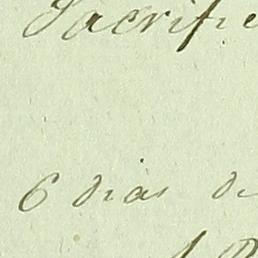 Sacrifi
6 dias de